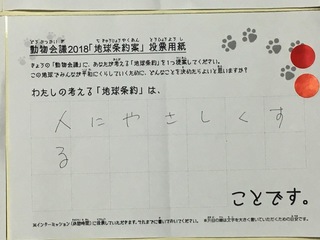 動物会議2018「地球条約案」投票用紙
きょうの「動物会議」に、あなたが考える「地球条約」を1つ提案してください。
この地球でみんなが平和にくらしていくために、どんなことを決めたらよいと思いますか?
わたしの考える「地球条約」は、
人にやさしくす
る
ことです。